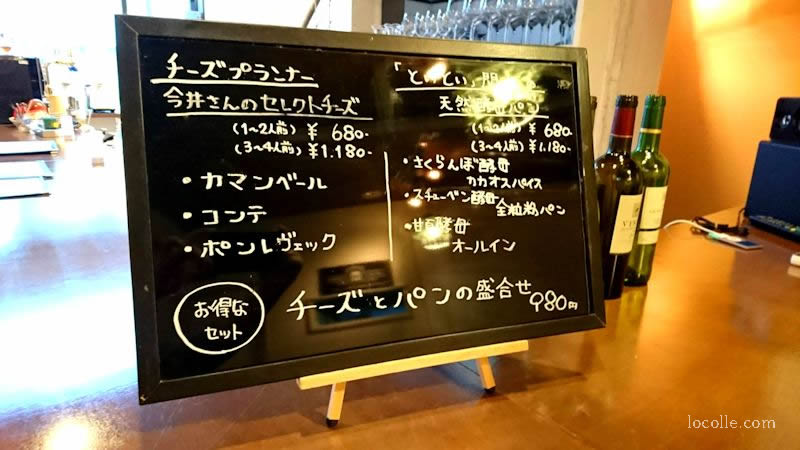 チーズプランナー
今井さんのセレクトチーズ
(1〜2人前) ¥680-
(3〜4人前) ¥1.180-
・カマンベール
・コンテ
・ポンレヴェック
「といとい」
天然酵母パン
(1〜2人前) ¥680-
(3〜4人前) ¥1.180-
・さくらんぼ酵母
カカオスパイス
・スチューベン酵母
全粒粉パン
酵母
オールイン
お得な
セット
チーズとパンの盛合せ 980円
locolle.com